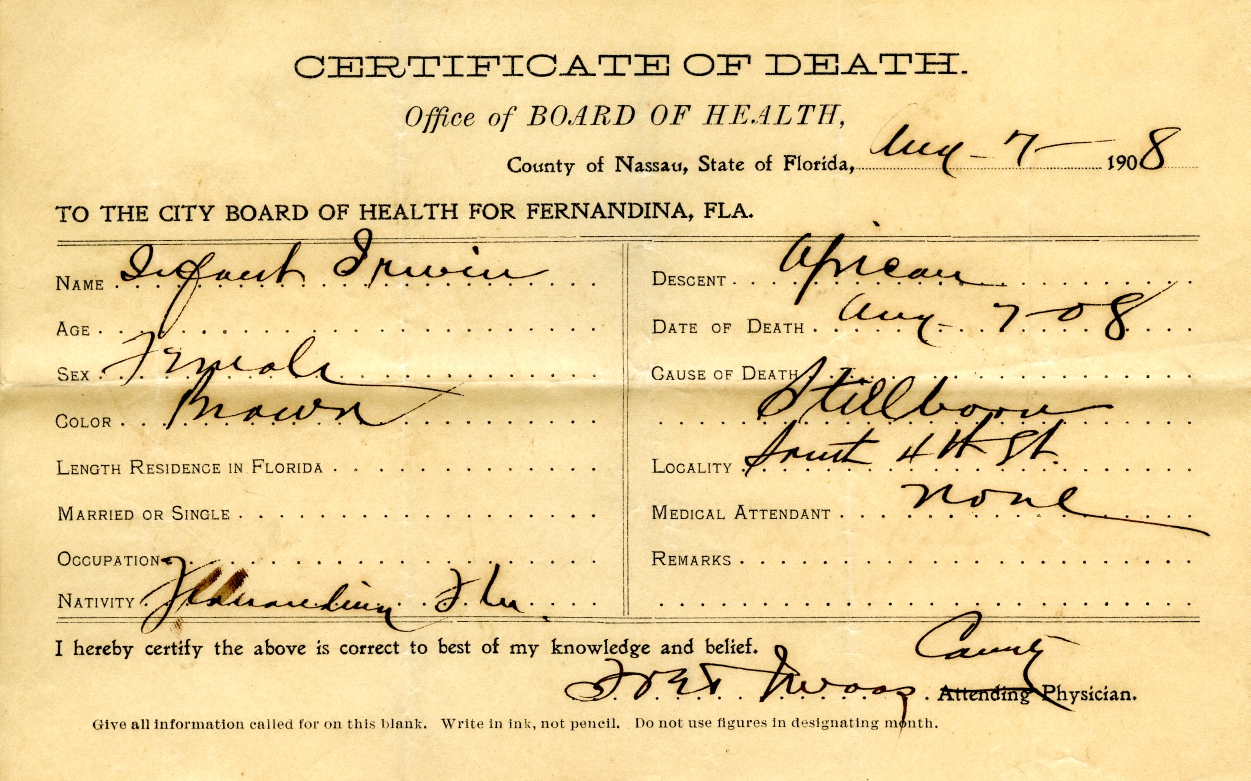 CERTIFICATE OF DEATH.
Office of BOARD OF HEALTH,
County of Nassau, State of Florida, Aug - 7 - 1908
TO THE CITY BOARD OF HEALTH FOR FERNANDINA, FLA.
NAME Infant Irwin
AGE
SEX Female
COLOR Brown
LENGTH RESIDENCE IN FLORIDA
MARRIED OR SINGLE
OCCUPATION
NATIVITY Fernandina Fla.
DESCENT African
DATE OF DEATH Aug - 7 - 08
CAUSE OF DEATH
Stillborn
LOCALITY South 4th St.
MEDICAL ATTENDANT None
REMARKS
I hereby certify the above is correct to best of my knowledge and belief.
County
Attending Physician.
Give all information called for on this blank. Write in ink, not pencil. Do not use figures in designating month.